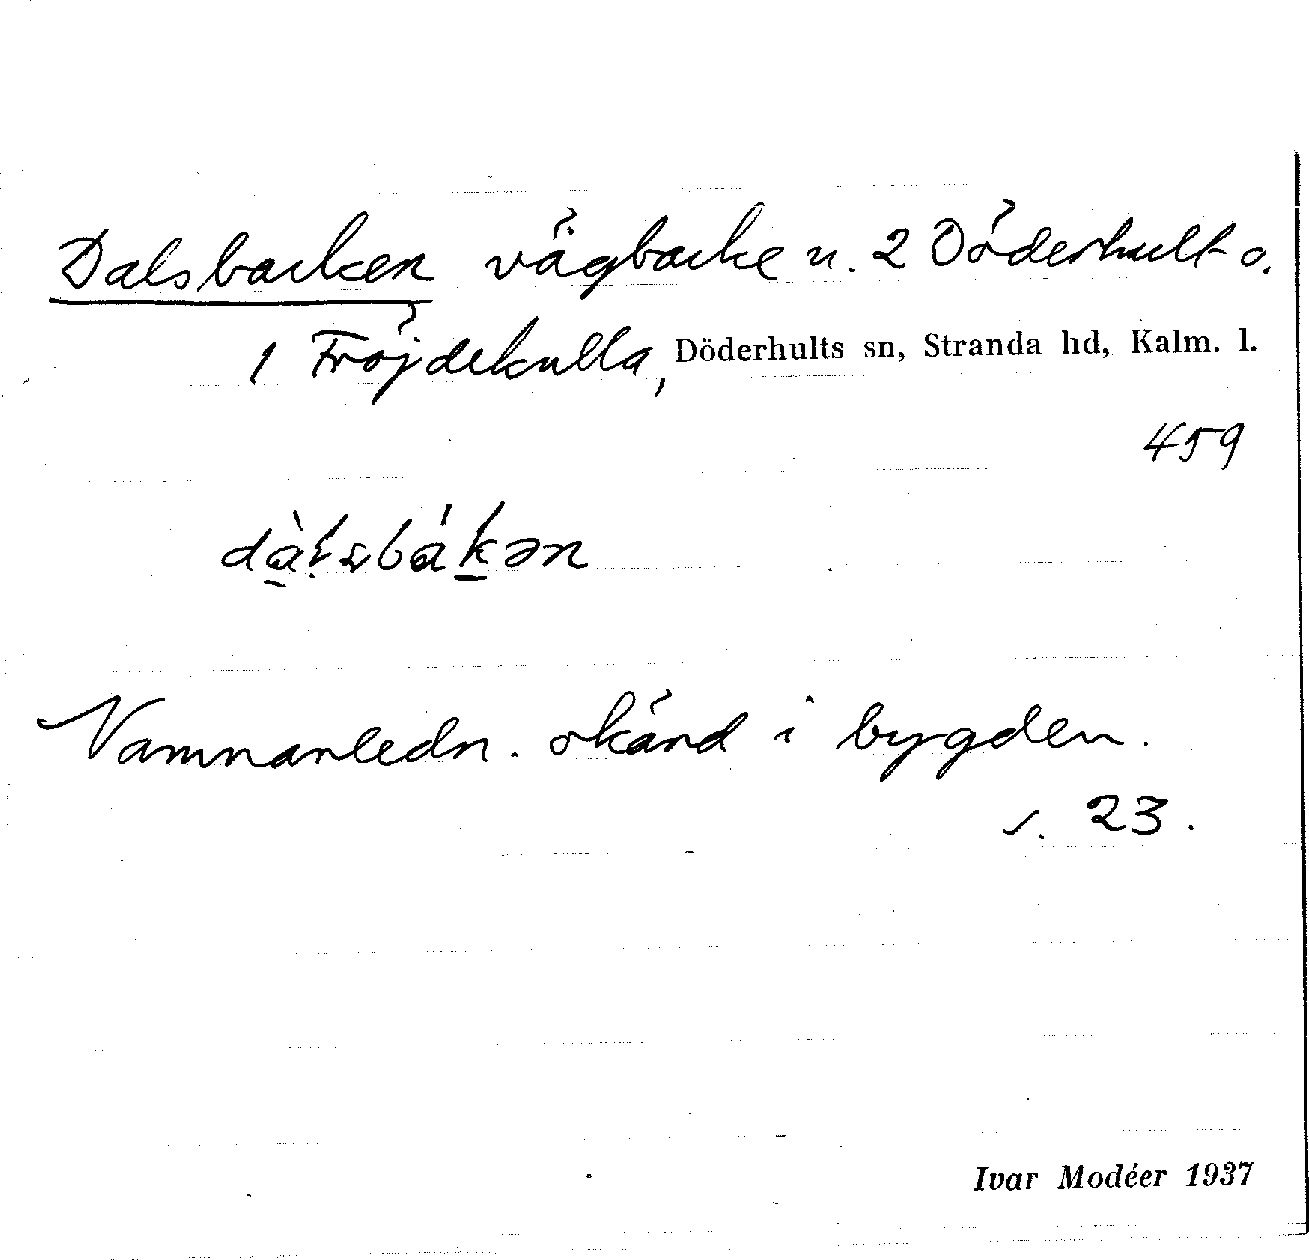 Dalsbacken vägbacke u. 2 Döderhult o.
1 Fröjdekulla, Döderhults sn, Stranda hd, Kalm. l.
459
Namnanledn. okänd i bygden.
s. 23.
Ivar Modéer 1937